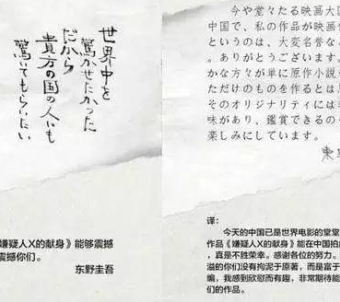 世界中を
驚かせたかった
だから
貴方の国の人にも
驚いてもらいたい
嫌疑人X的献身》能够震撼
震撼你们。
东野圭吾
今や堂々たる映画大国
中国で、私の作品が映画化
というのは、大変名誉な
。ありがとうございます。
かな方々が単に原作小説を
ただけのものを作るとは思
そのオリジナリティには
味があり、鑑賞できるの
楽しみにしています。
東
译：
今天的中国已是世界电影的堂堂
作品《嫌疑人X的献身》能在中国拍
，真是不胜荣幸。感谢各位的努力。
溢的你们没有拘泥于原著，而是富于
编，我感到欣慰而有趣，非常期待能
们的作品。